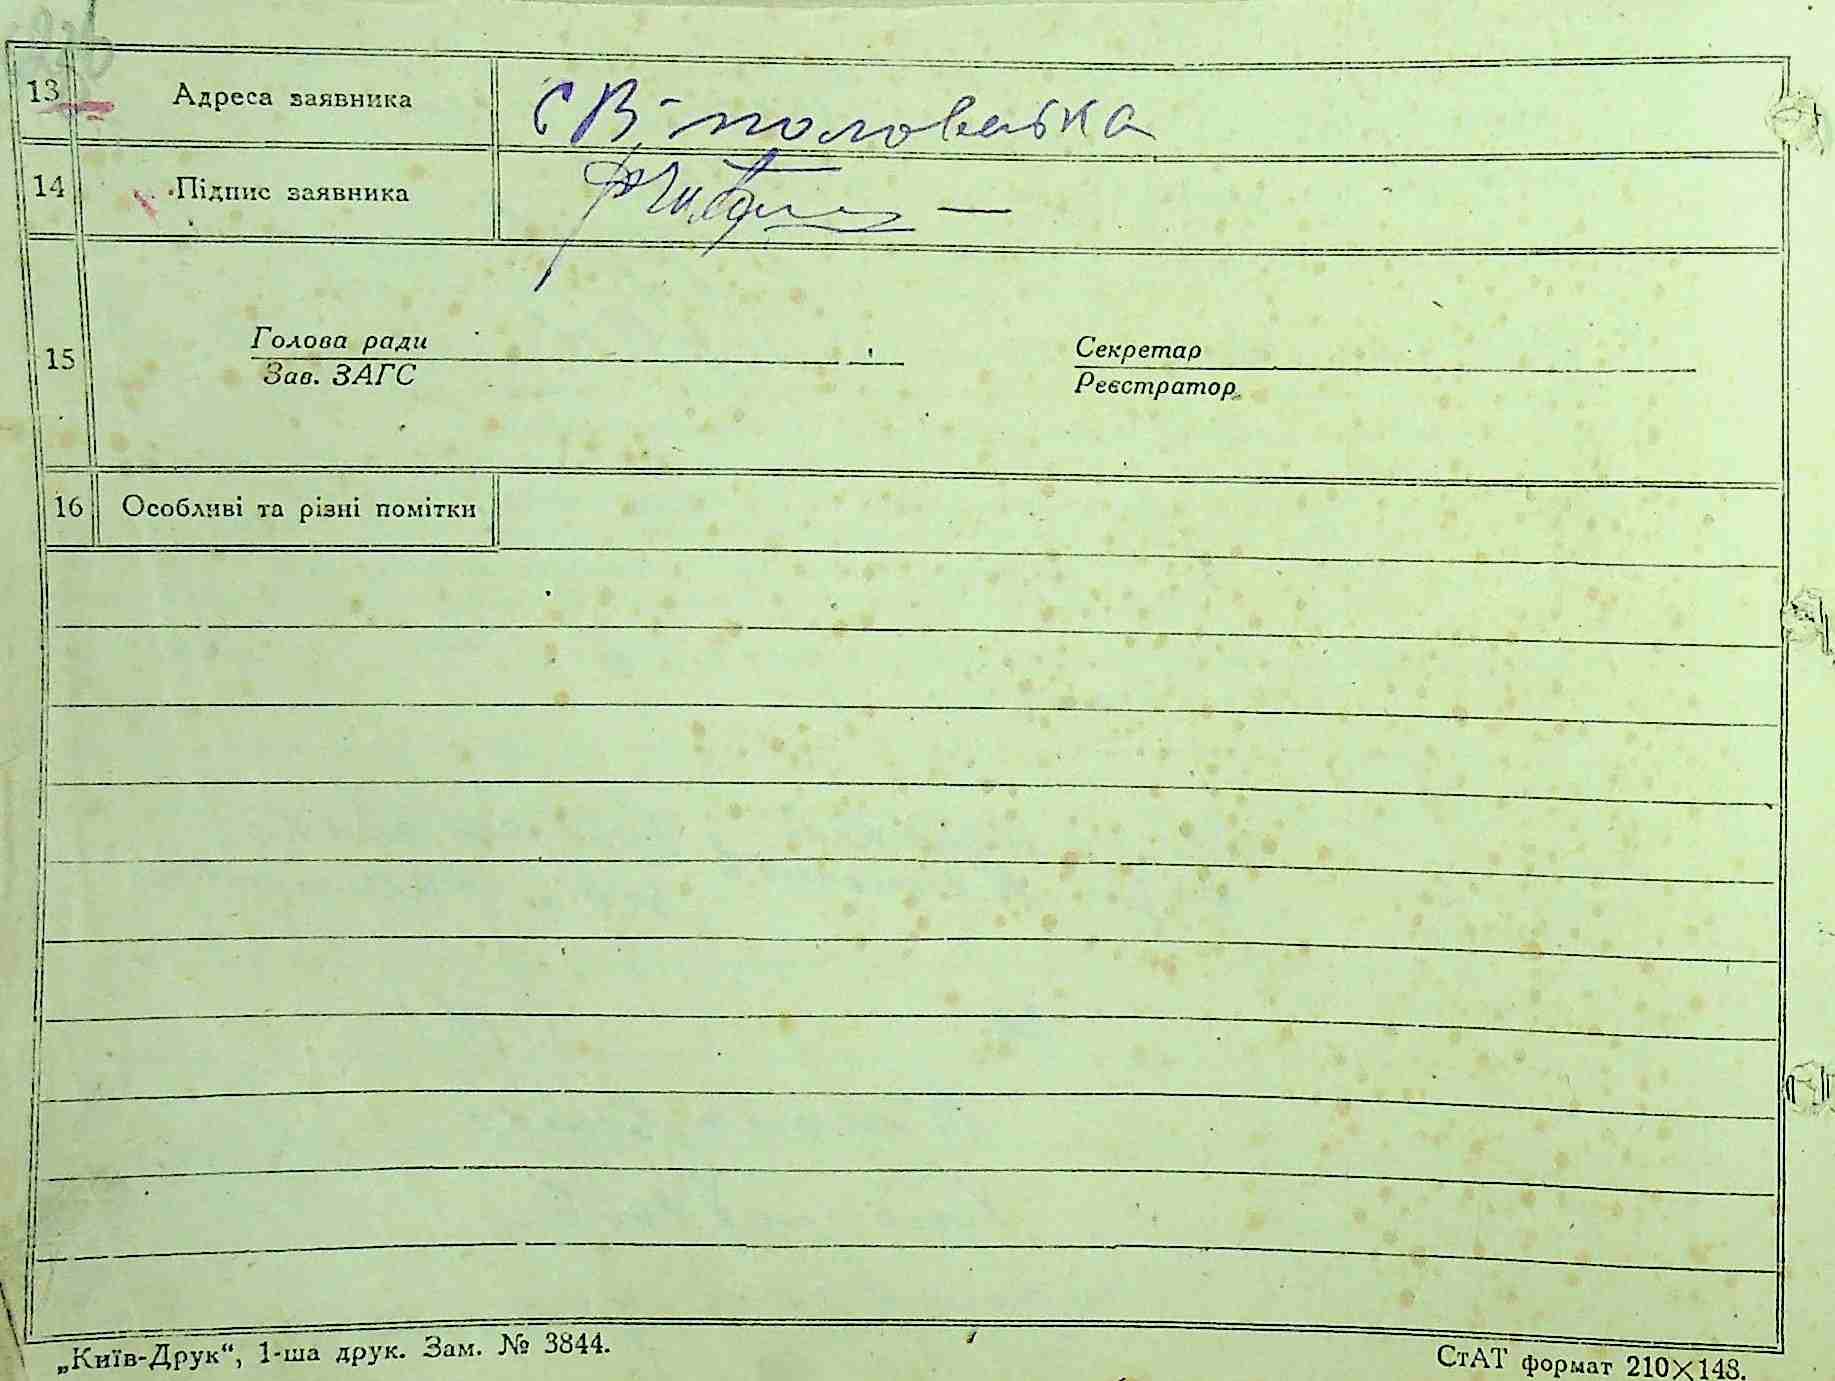 13 Адреса заявника с В-половецька
14 Підпис заявника
15 Голова ради Секретар
Зав. ЗАГС Реєстратор
16 Особливі та різні помітки
„Київ-Друк“, 1-ша друк. Зам. № 3844. СтАТ формат 210×148.